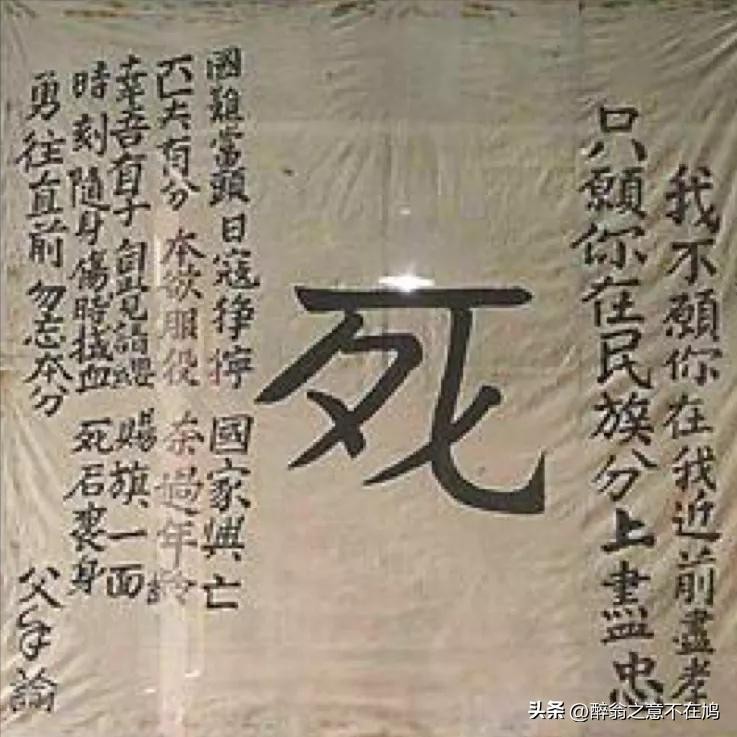 我不願你在我近前盡孝
只願你在民族分上盡忠
死
國難當頭 日寇猙獰 國家興亡
匹夫有分 本欲服役 奈過年齡
幸吾有子 自覺請纓 賜旗一面
時刻隨身 傷時拭血 死后裹身
勇往直前 勿忘本分
父手諭
头条 @醉翁之意不在鸠